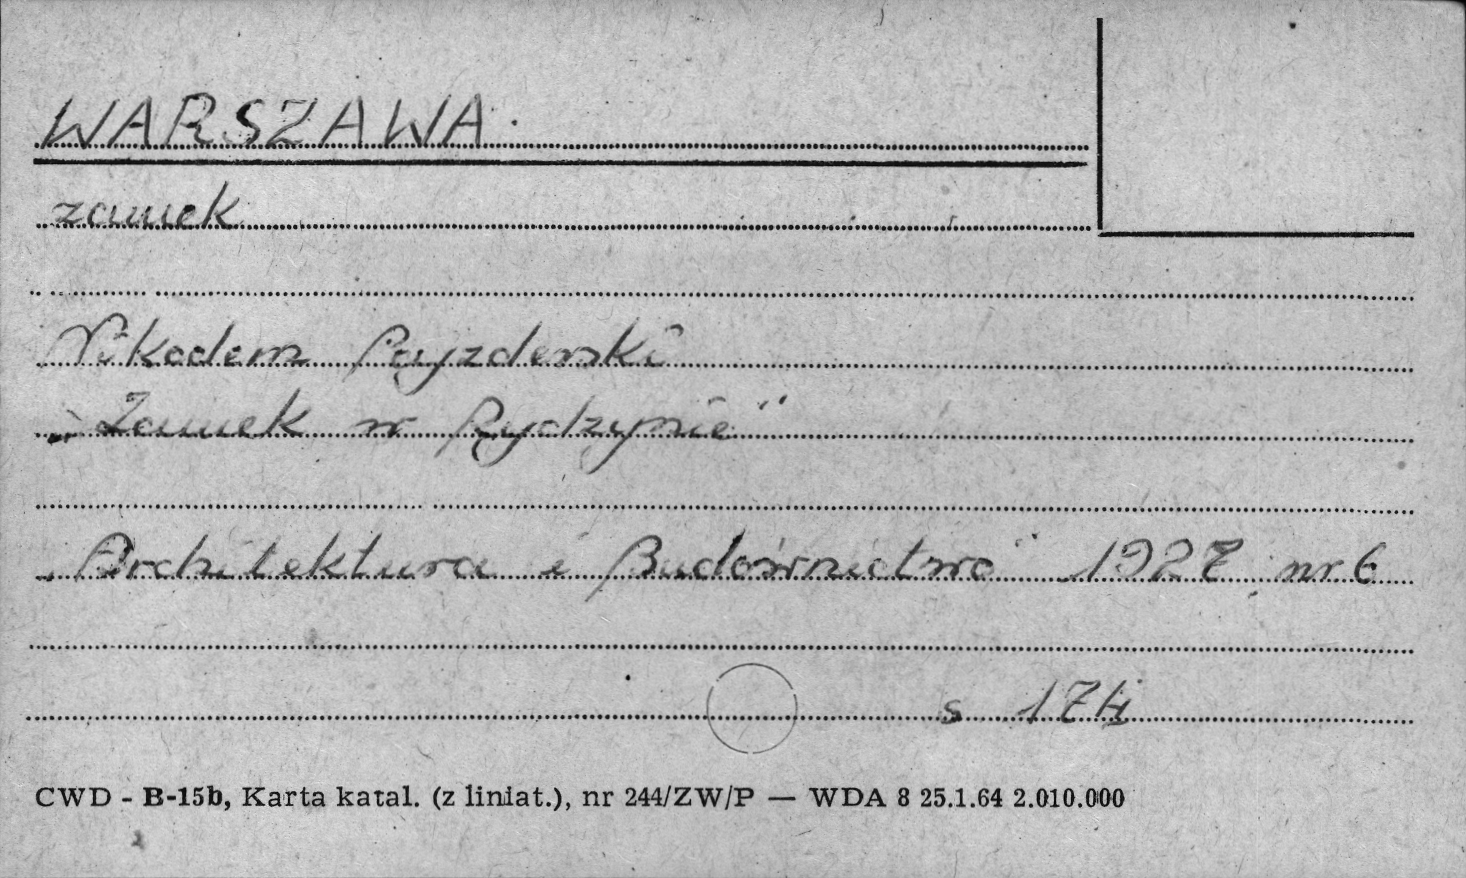 WARSZAWA.
zamek
Nikodem Pajzderski
"Zamek w Rydzynie"
"Architektura i Budownictwo" 1927 nr 6
s 174
CWD - B-15b, Karta katal. (z liniat.), nr 244/ZW/P — WDA 8 25.1.64 2.010.000